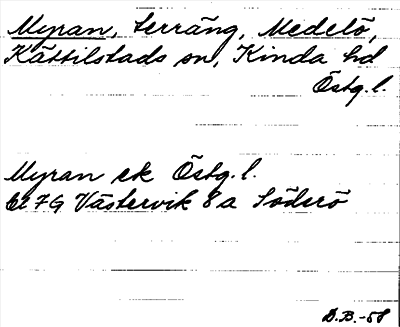 Myran, terräng, Medelö,
Kättilstads sn, Kinda hd
Östg. l.
Myran ek Östg. l.
7G Västervik 8a Söderö
D.B.-58